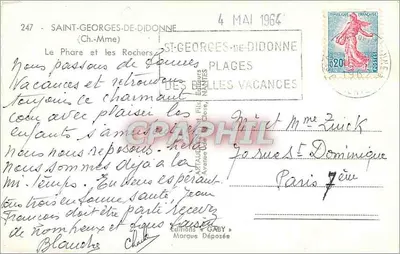 247 - SAINT-GEORGES-DE-DIDONNE
(Ch.-Mme)
Le Phare et les Rochers
4 MAI 1964
ST-GEORGES-DE-DIDONNE
PLAGES
DES BELLES VACANCES
0,20
Nous passons de bonnes
Vacances et retrouvons
toujours ce charmant
coin avec plaisir. les
enfants s'amusent
Nous nous reposons. Hélas
Nous sommes déjà à la
mi-temps. Espérant
tous trois en bonne santé, Jean
François doit être parti recevez
de nombreux et bons baisers
Blanche
Mr et Mme Zuick
70 rue St Dominique
Paris 7ème
Editions "GABY"
Marque Déposée
CPARHIPHIL